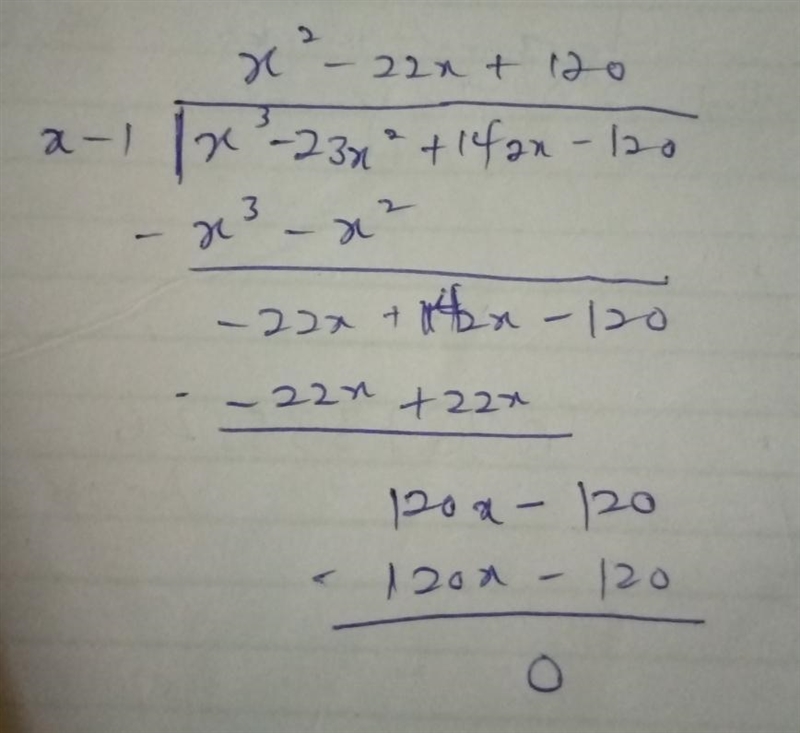 x² - 22x + 120
x - 1 | x³ - 23x² + 142x - 120
- x³ - x²
-22x + 142x - 120
- -22x + 22x
120x - 120
- 120x - 120
0